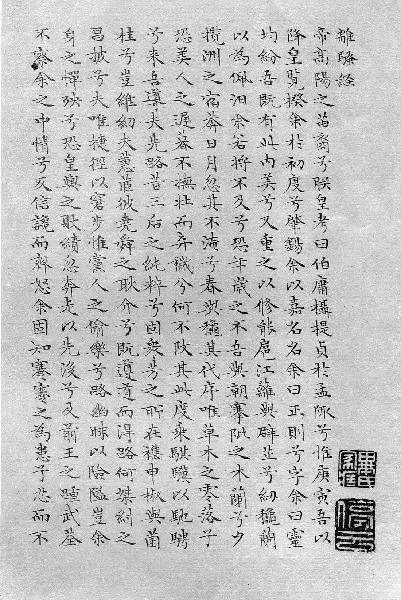 離騷經
帝高陽之苗裔兮朕皇考曰伯庸攝提貞於孟陬兮惟庚寅吾以
降皇覽揆余於初度兮肇錫余以嘉名名余曰正則兮字余曰靈
均紛吾既有此內美兮又重之以修能扈江蘺與辟芷兮紉穐蘭
以為佩汨余若將不及兮恐年歲之不吾與朝搴阰之木蘭兮夕
攬洲之宿莽日月忽其不淹兮春與穐其代序唯草木之零落兮
恐美人之遲暮不撫壯而棄穢兮何不改其此度乘騏驥以馳騁
兮來吾導夫先路昔三后之純粹兮固衆芳之所在襍申椒與菌
桂兮豈維紉夫蕙茝彼堯舜之耿介兮既遵道而得路何桀紂之
昌披兮夫唯捷徑以窘步惟黨人之偷樂兮路幽昧以險隘豈余
身之憚殃兮恐皇輿之敗績忽奔走以先後兮及前王之踵武荃
不察余之中情兮反信讒而齌怒余固知謇謇之為患兮忍而不
停雲